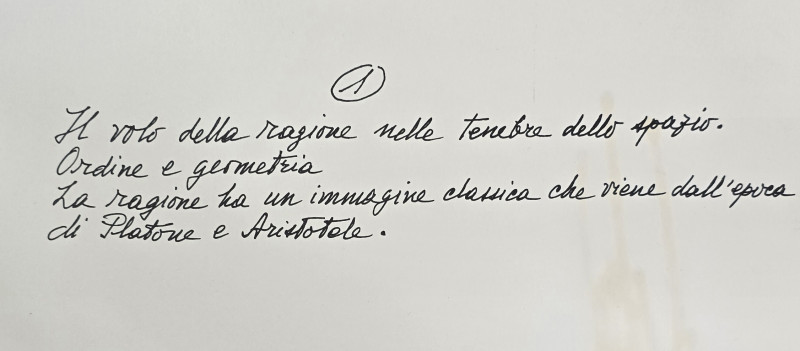 1
Il volo della ragione nelle tenebre dello spazio.
Ordine e geometria
La ragione ha un immagine classica che viene dall'epoca
di Platone e Aristotele.